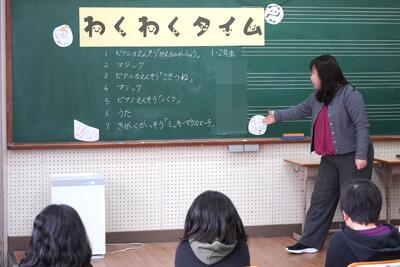 わくわくタイム
1 ピアニカえんそう「かえるのがっしょう」 1・2年生
2 マジック
3 ピアニカえんそう「こぎつね」
4 マジック
5 ピアノえんそう「バフ」
6 うた
7 きがくがっそう「ミッキーマウスマーチ」